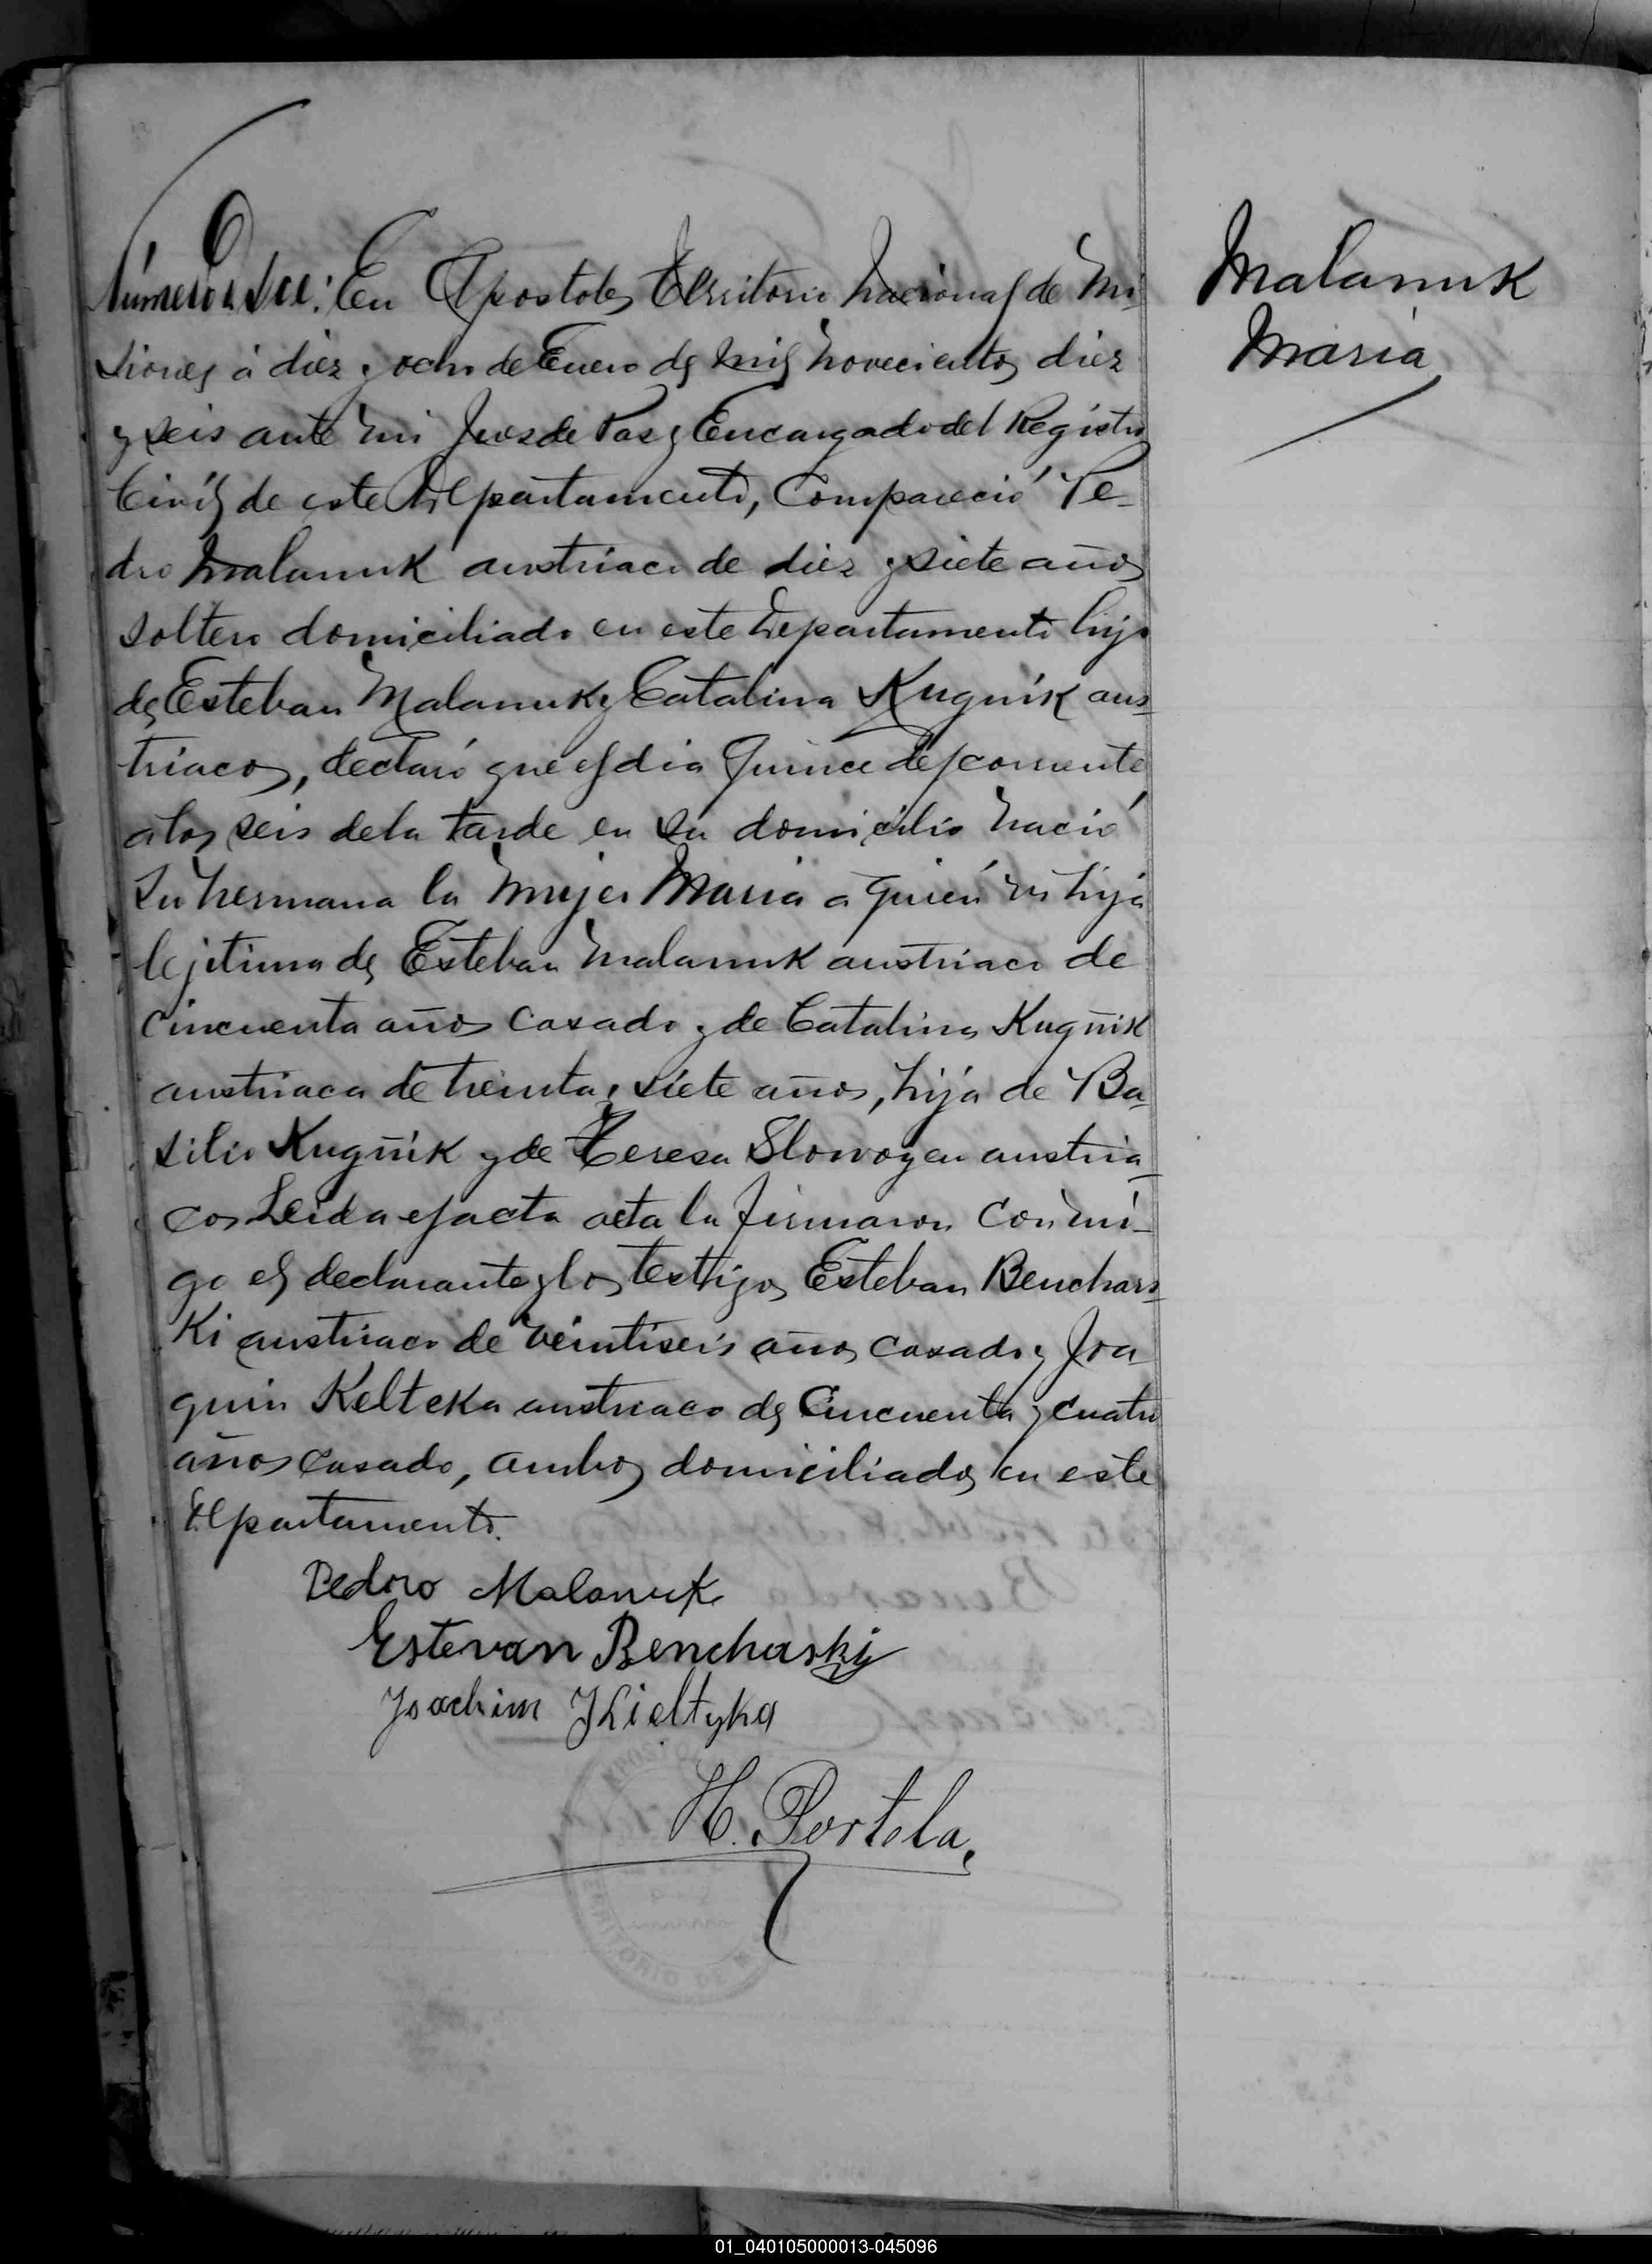 Malanuk
Maria
Número doce: En Apostoles Territorio Nacional de Mi-
siones á diez y ocho de Enero de mil novecientos diez
y seis ante mi Juez de Paz y Encargado del Registro
Civil de este Departamento, Compareció Pe-
dro Malanuk austriaco de diez y siete años
soltero domiciliado en este Departamento hijo
de Esteban Malanuk y Catalina Kugnik aus-
triacos, declaró que el dia quince del corriente
a las seis de la tarde en su domicilio nació
su hermana la mujer Maria a quién es hija
lejitima de Esteban Malanuk austriaco de
cincuenta años casado y de Catalina Kugñik
austriaca de treinta y siete años, hija de Ba-
silio Kugñik y de Teresa Slowogen austria-
cos Leida el acta acta la firmaron conmi-
go el declarante y los testigos Esteban Benchars-
ki austriaco de veintiseis años casado y Joa-
quin Kelteka austriaco de cincuenta y cuatro
años casado, ambos domiciliados en este
Departamento.
Pedro Malanuk
Estevan Benchaski
Joachim Kieltyka
H. Portela.
TERRITORIO DE
01_040105000013-045096